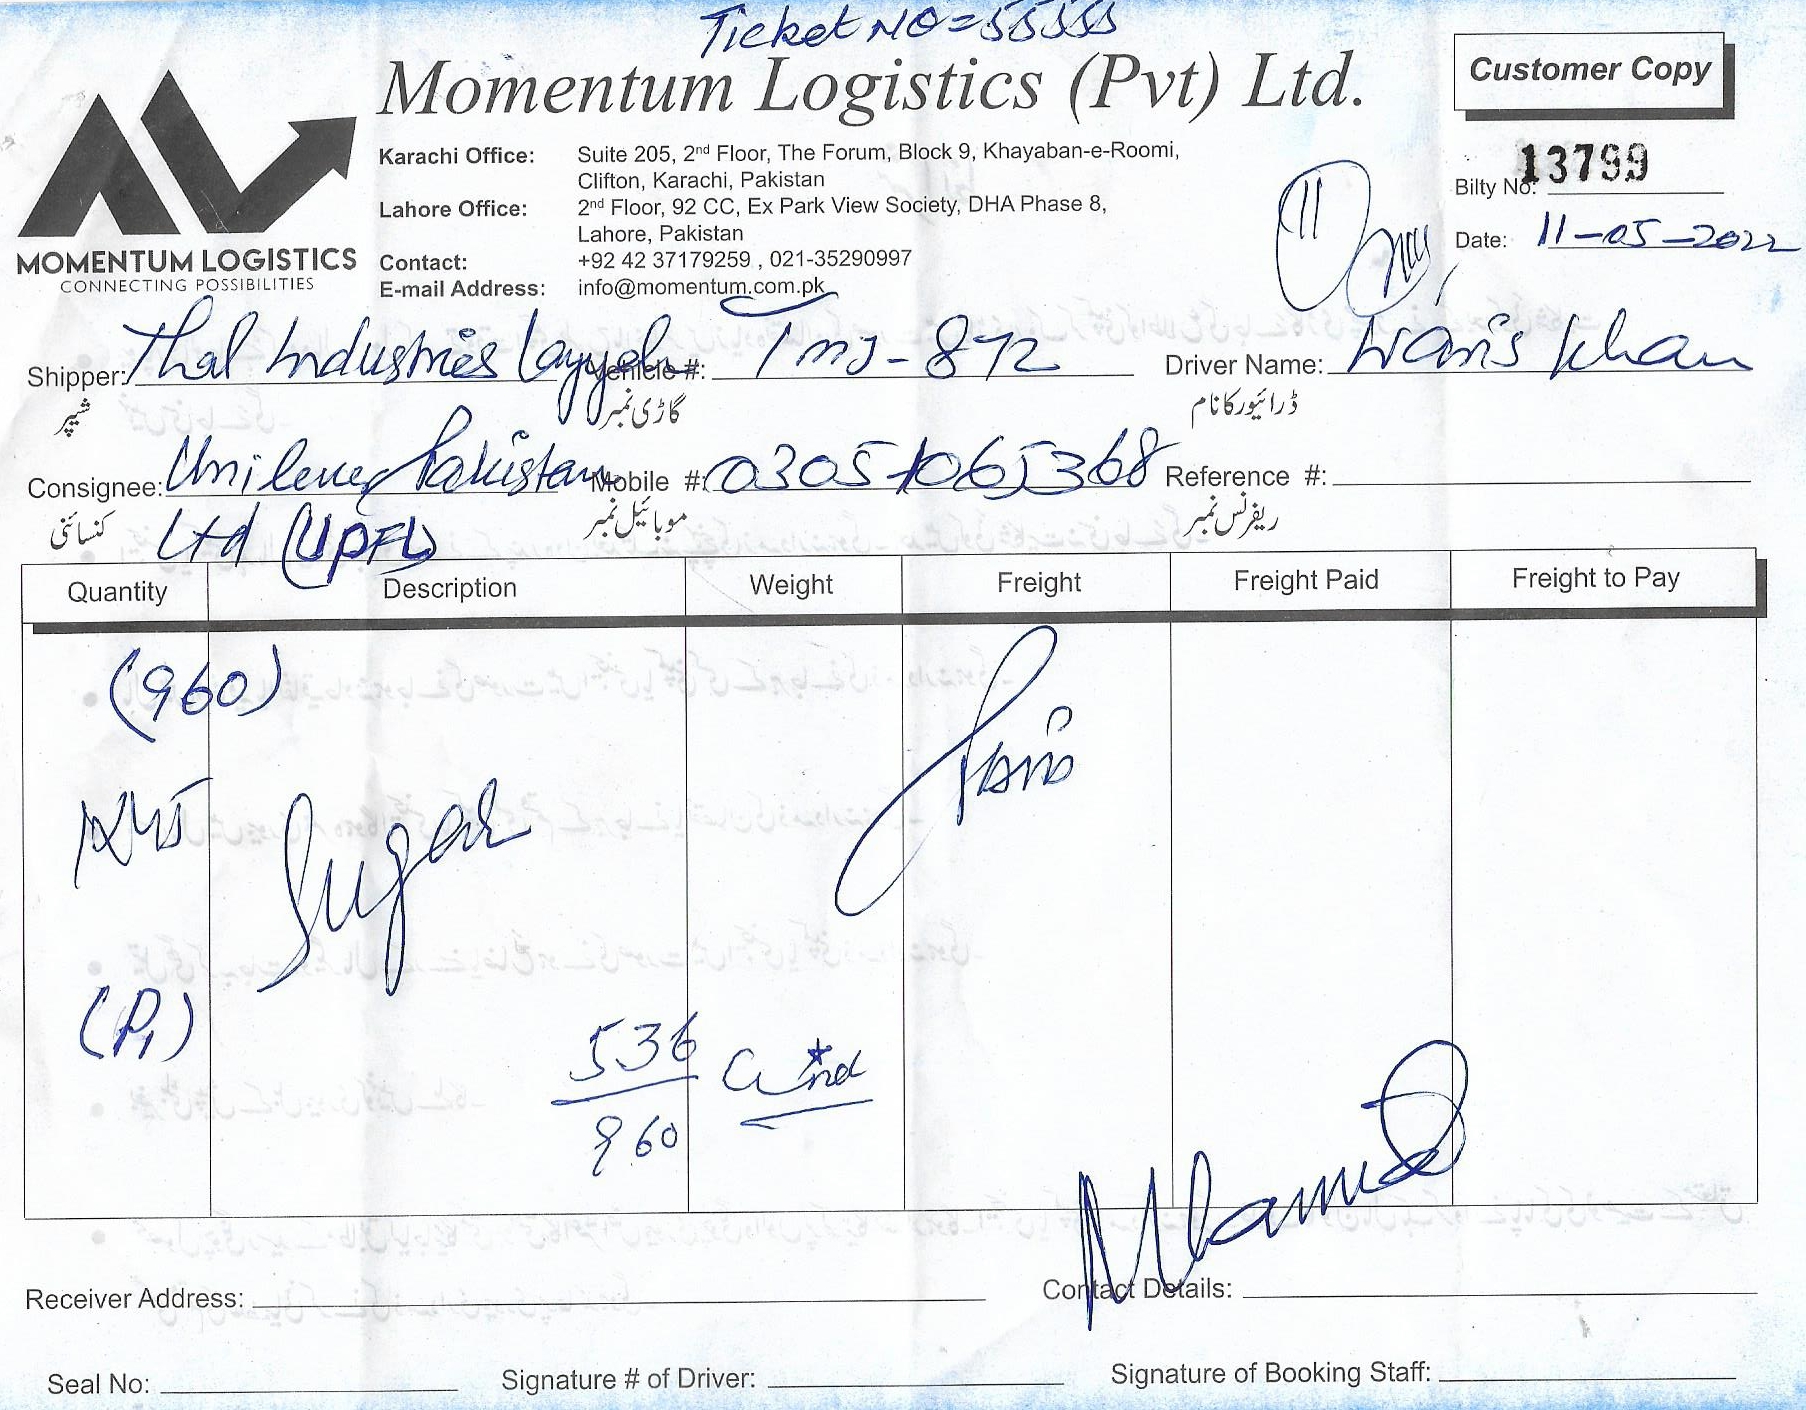 Ticket NO = 55555
Momentum Logistics (Pvt) Ltd.
Customer Copy
MOMENTUM LOGISTICS
CONNECTING POSSIBILITIES
Karachi Office: Suite 205, 2nd Floor, The Forum, Block 9, Khayaban-e-Roomi,
Clifton, Karachi, Pakistan
Lahore Office: 2nd Floor, 92 CC, Ex Park View Society, DHA Phase 8,
Lahore, Pakistan
Contact: +92 42 37179259 , 021-35290997
E-mail Address: info@momentum.com.pk
Bilty No: 13799
Date: 11-05-2022
Shipper: Thal Industries Layyah Vehicle #: TMJ-872 Driver Name: Waris Khan
شیپر گاڑی نمبر ڈرائیور کا نام
Consignee: Unilever Pakistan Mobile #: 0305-1065368 Reference #:
Ltd (UPFL)
کنسائنی موبائیل نمبر ریفرنس نمبر
Quantity Description Weight Freight Paid Freight to Pay
Freight
(960)
Sugar
(P1)
536
960
Receiver Address: Contact Details:
Seal No: Signature # of Driver: Signature of Booking Staff: